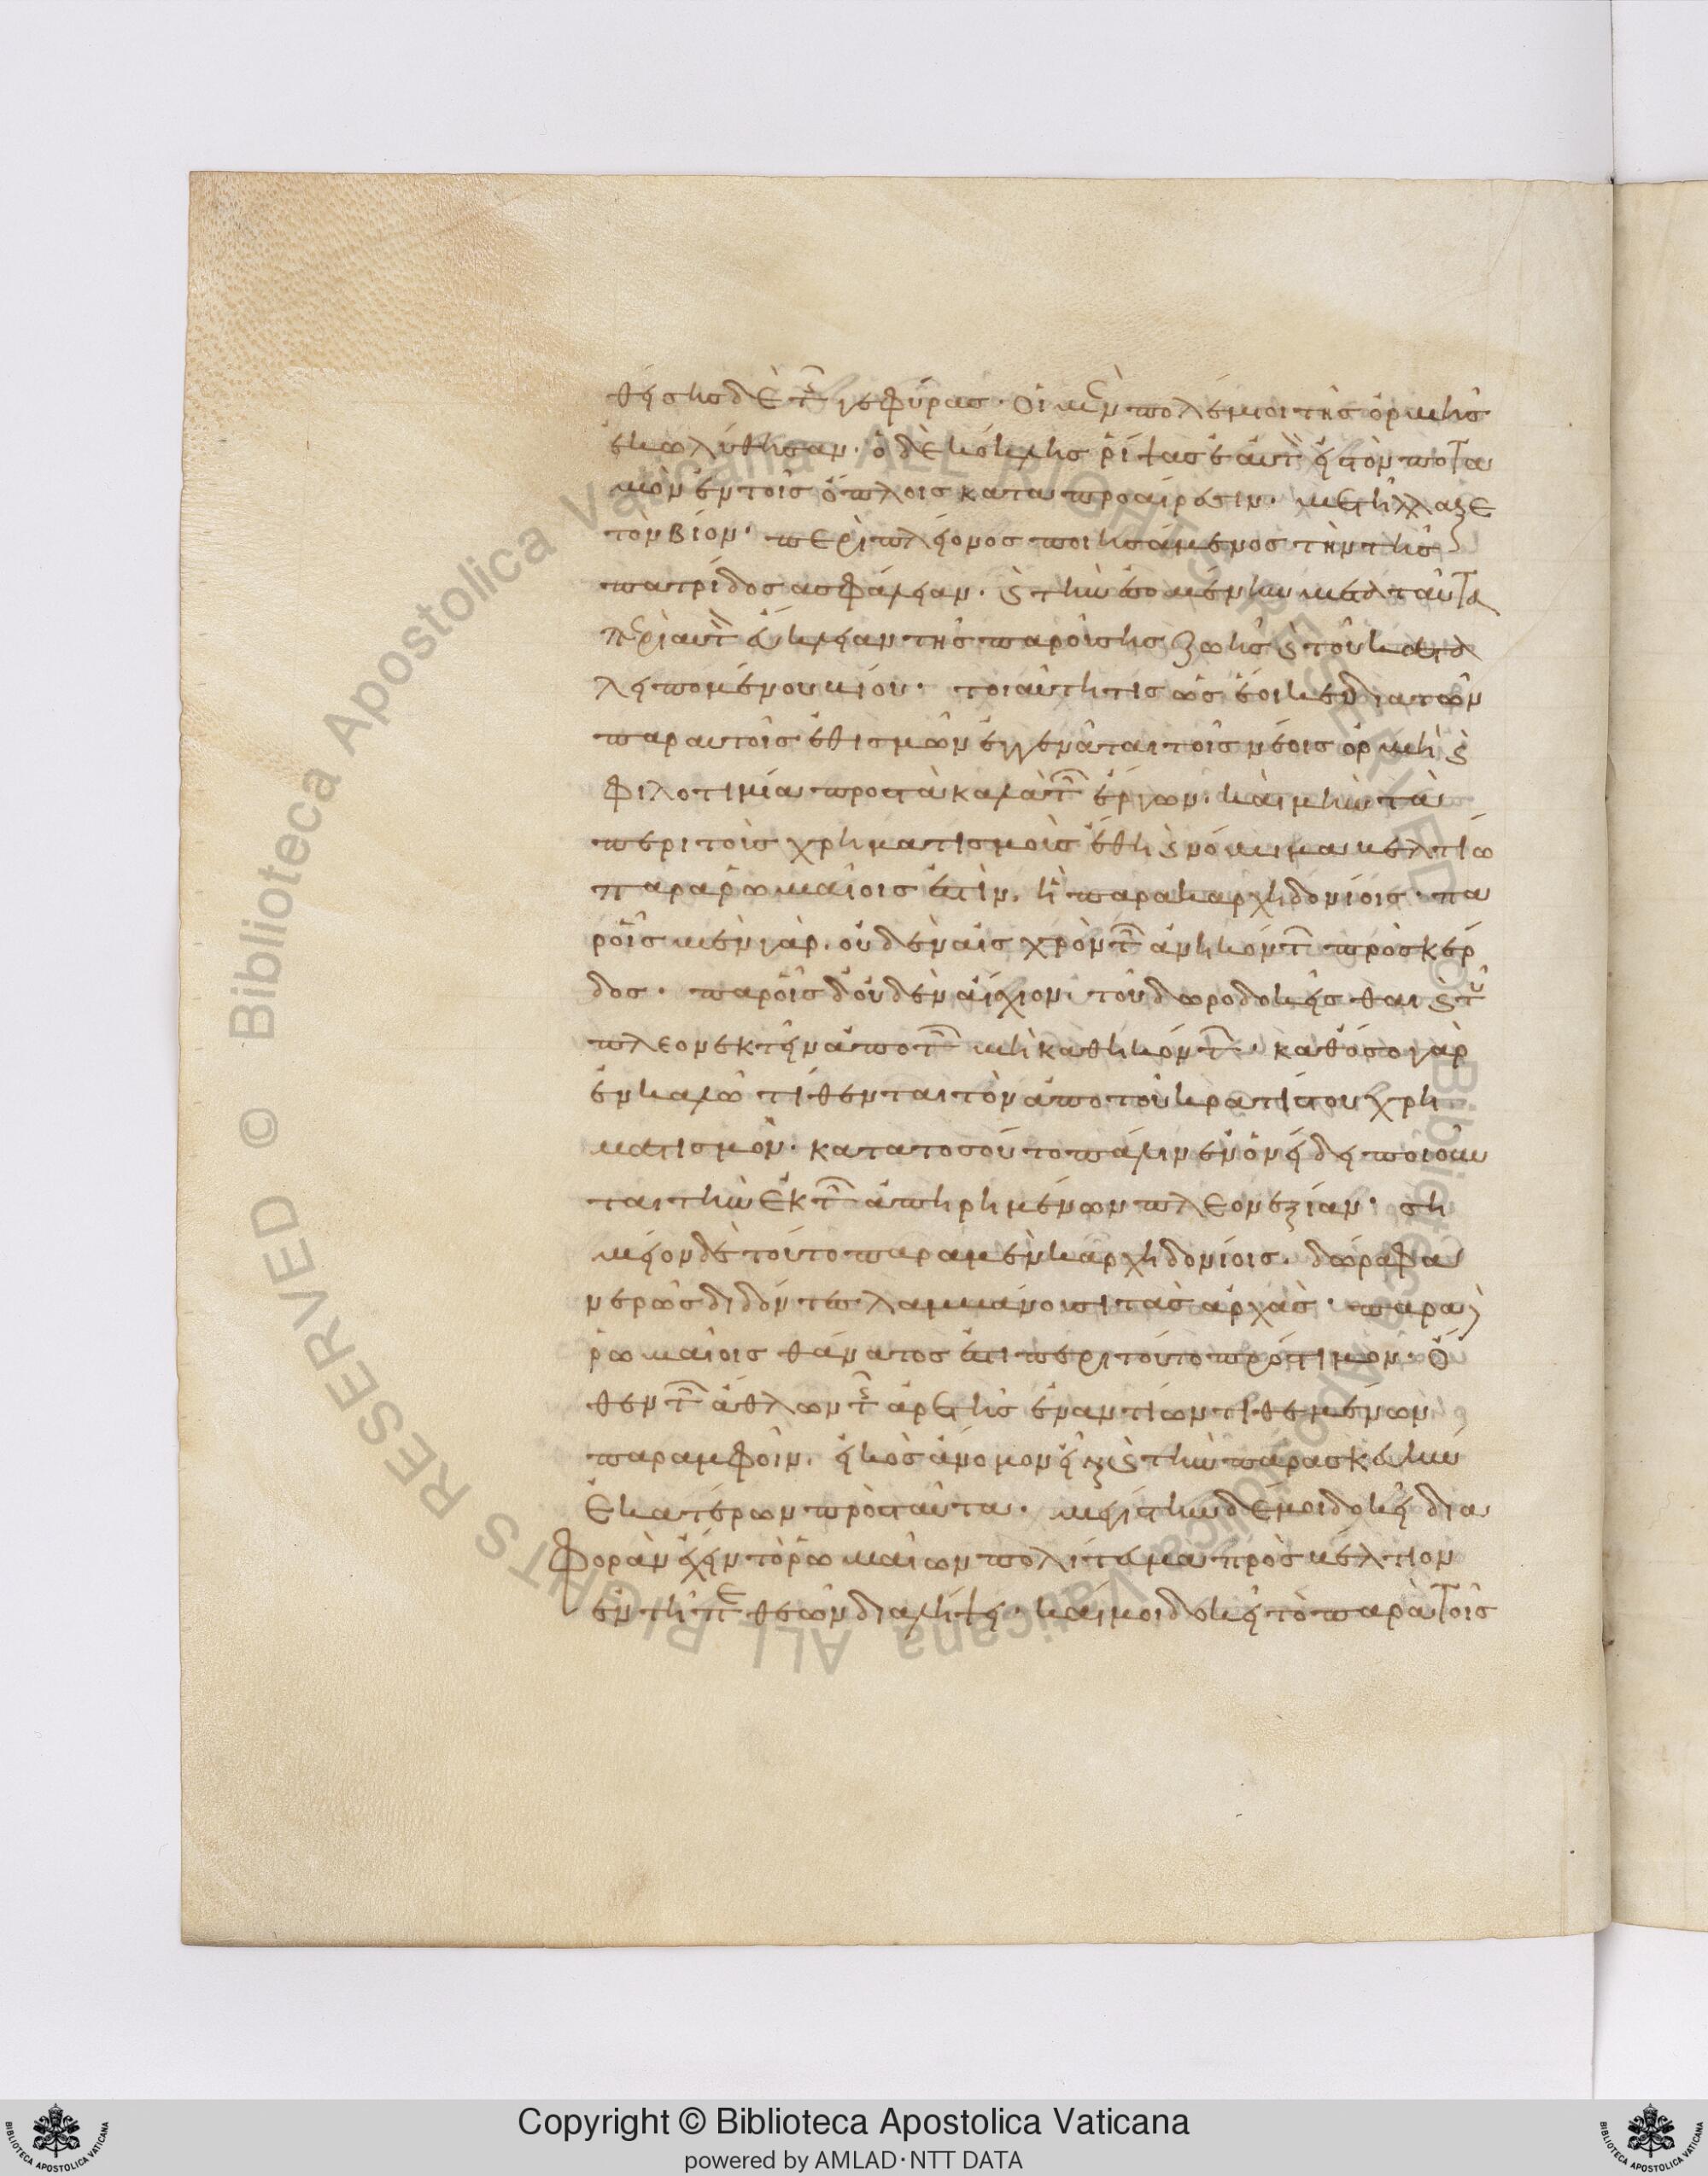 θείσης δὲ τῆς γεφύρας· οἱ μὲν πολέμιοι τῆς ὁρμῆς
ἐκωλύθησαν· ὁ δὲ κόκλης ῥίψας ἑαυτὸν εἰς τὸν ποτα
μὸν ἐν τοῖς ὅπλοις κατα προαίρεσιν· μετήλλαξε
τὸν βίον· περὶ πλείονος ποιησάμενος τὴν τῆς
πατρίδος ασφάλειαν· καὶ τὴν ἐσομένην μετα ταῦτα
περὶ αυτὸν εὔκλειαν τῆς παρούσης ζωῆς καὶ τοῦ κατα
λειπομένου βίου· τοιαύτη τις ὡς ἔοικεν δια τῶν
παρ αυτοῖς ἐθισμῶν ἐγγενᾶται τοῖς νέοις ὁρμὴ καὶ
φιλοτιμία προς τὰ καλὰ τῶν ἔργων· καὶ μὴν τὰ
περι τοὺς χρηματισμοὺς ἔθη καὶ νόμιμα βελτίω
παρα ῥωμαίοις ἐστὶν, ἢ παρα καρχηδονίοις· πα
ρ οἷς μὲν γὰρ, οὐδὲν αἰσχρὸν τῶν ἀνηκόντων πρὸς κέρ
δος· παρ οἷς δ οὐδὲν αἴσχιον, τοῦ δωροδοκεῖσθαι καὶ τοῦ
πλεονεκτεῖν ἀπο τῶν μὴ καθηκόντων· καθ ὅσο γὰρ
ἐν καλῶ τίθενται τὸν ἀπο τοῦ κρατίστου χρη
ματισμὸν· κατα τοσοῦτο πάλιν ἐν ὀνείδει ποιοῦν
ται τὴν ἐκ τῶν ἀπηρημένων πλεονεξίαν· ση
μεῖον δὲ τοῦτο παρα μὲν καρχηδονίοις, δῶρα φα
νερῶς διδόντες λαμβάνουσι τὰς ἀρχάς· παρα
ῥωμαίοις θάνατος ἐστι περι τοῦτο πρόστιμον· ὅ
θεν τῶν ἄθλων τῆς ἀρετῆς ἐναντίων τιθεμένων
παρ αμφοῖν, εἰκὸς ἀνόμοιον εἶναι καὶ τὴν παρασκευὴν
ἑκατέρων πρὸς ταῦτα· μεγίστην δέ μοι δοκεῖ δια
φορὰν ἔχειν τὸ ῥωμαίων πολίτευμα πρὸς βέλτιον
ἐν τῆ περὶ θεῶν διαλήψει· καί μοι δοκεῖ τὸ παρὰ τοῖς
Copyright © Biblioteca Apostolica Vaticana
powered by AMLAD·NTT DATA